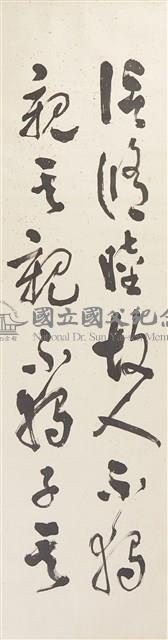 信修睦故人不獨
親其親不獨子其
國立國父紀念館
National Dr. Sun Yat-sen Mem